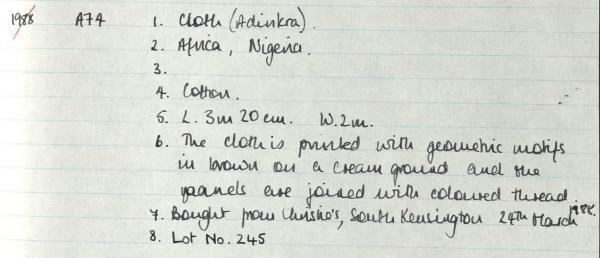 1988 A74 1. Cloth (Adinkra).
2. Africa, Nigeria.
3.
4. Cotton.
5. L. 3m 20cm. W. 2m.
6. The cloth is printed with geometric motifs
in brown on a cream ground and the
panels are joined with coloured thread.
7. Bought from Christie's, South Kensington 24th March 1988.
8. Lot No. 245